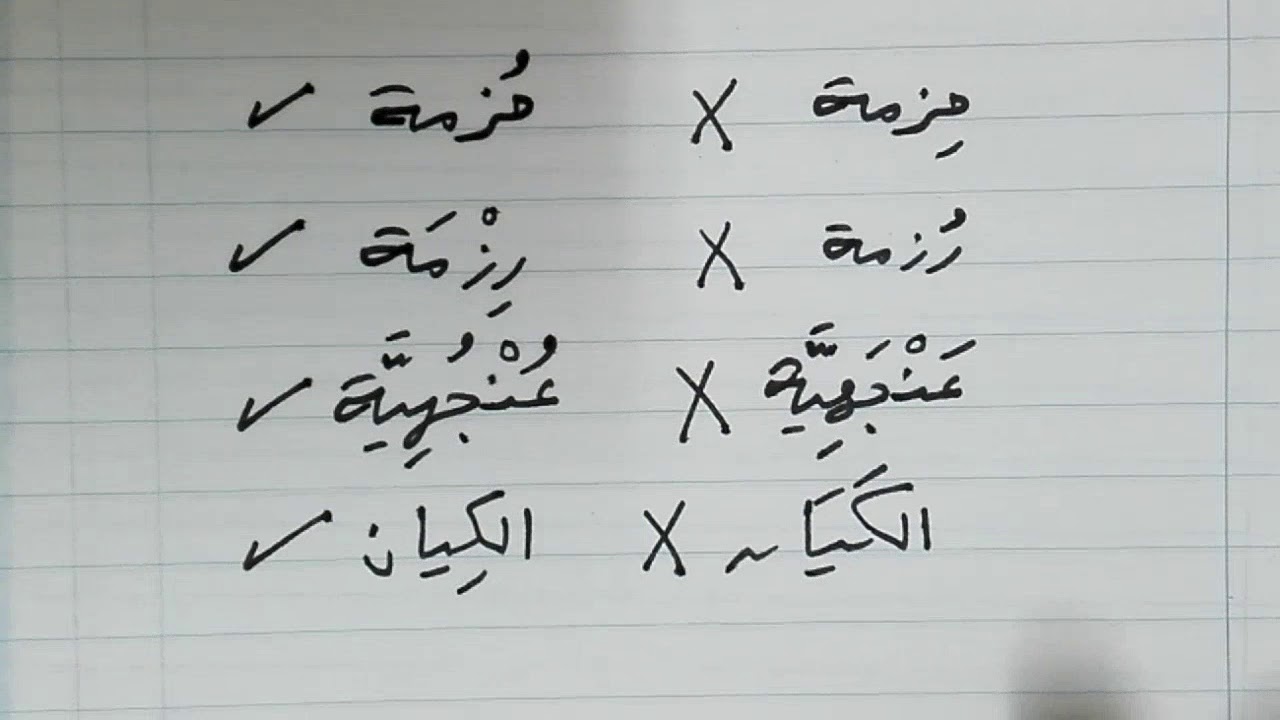 حِزمة X حُزمة ✓
رُزمة X رِزْمَة ✓
عَنْجَهِيَّة X عُنْجُهِيَّة ✓
الكَيَان X الكِيان ✓